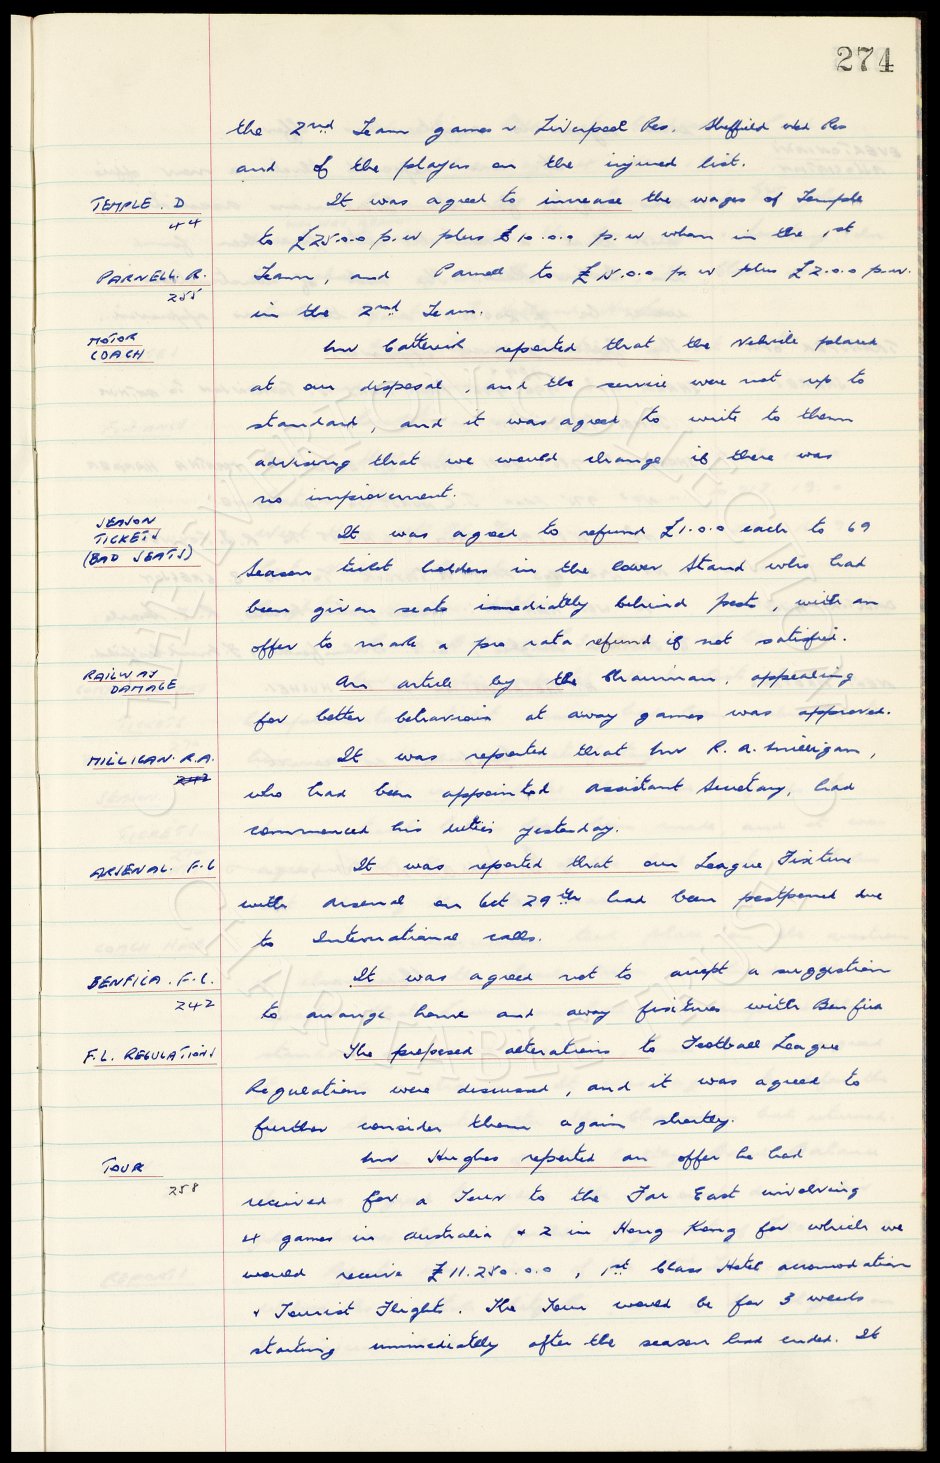 274
the 2nd Team games v Liverpool Res. Sheffield Wed Res
and of the players on the injured list.
TEMPLE. D
44
It was agreed to increase the wages of Temple
to £25.0.0 p.w plus £10.0.0 p.w when in the 1st
PARNELL. R.
255
Team, and Parnell to £15.0.0 p.w plus £2.0.0 p.w.
in the 2nd Team.
MOTOR
COACH
Mr Catterick reported that the vehicle placed
at our disposal, and the service were not up to
standard, and it was agreed to write to them
advising that we would change if there was
no improvement.
SEASON
TICKETS
(BAD SEATS)
It was agreed to refund £1.0.0 each to 69
Season ticket holders in the lower Stand who had
been given seats immediately behind posts, with an
offer to make a pro rata refund if not satisfied.
RAILWAY
DAMAGE
An article by the Chairman, appealing
for better behaviour at away games was approved.
MILLIGAN. R.A.
242
It was reported that Mr R. A. Milligan,
who had been appointed Assistant Secretary, had
commenced his duties yesterday.
ARSENAL. F.C
It was reported that our League Fixture
with Arsenal on Oct 29th had been postponed due
to International calls.
BENFICA. F.C.
242
It was agreed not to accept a suggestion
to arrange home and away fixtures with Benfica
F.L. REGULATIONS
The proposed alterations to Football League
Regulations were discussed, and it was agreed to
further consider them again shortly.
TOUR
258
Mr Hughes reported an offer he had
received for a Tour to the Far East involving
4 games in Australia + 2 in Hong Kong for which we
would receive £11.250.0.0, 1st Class Hotel accomodation
+ Tourist Flights. The Tour would be for 3 weeks
starting immediately after the season had ended. It